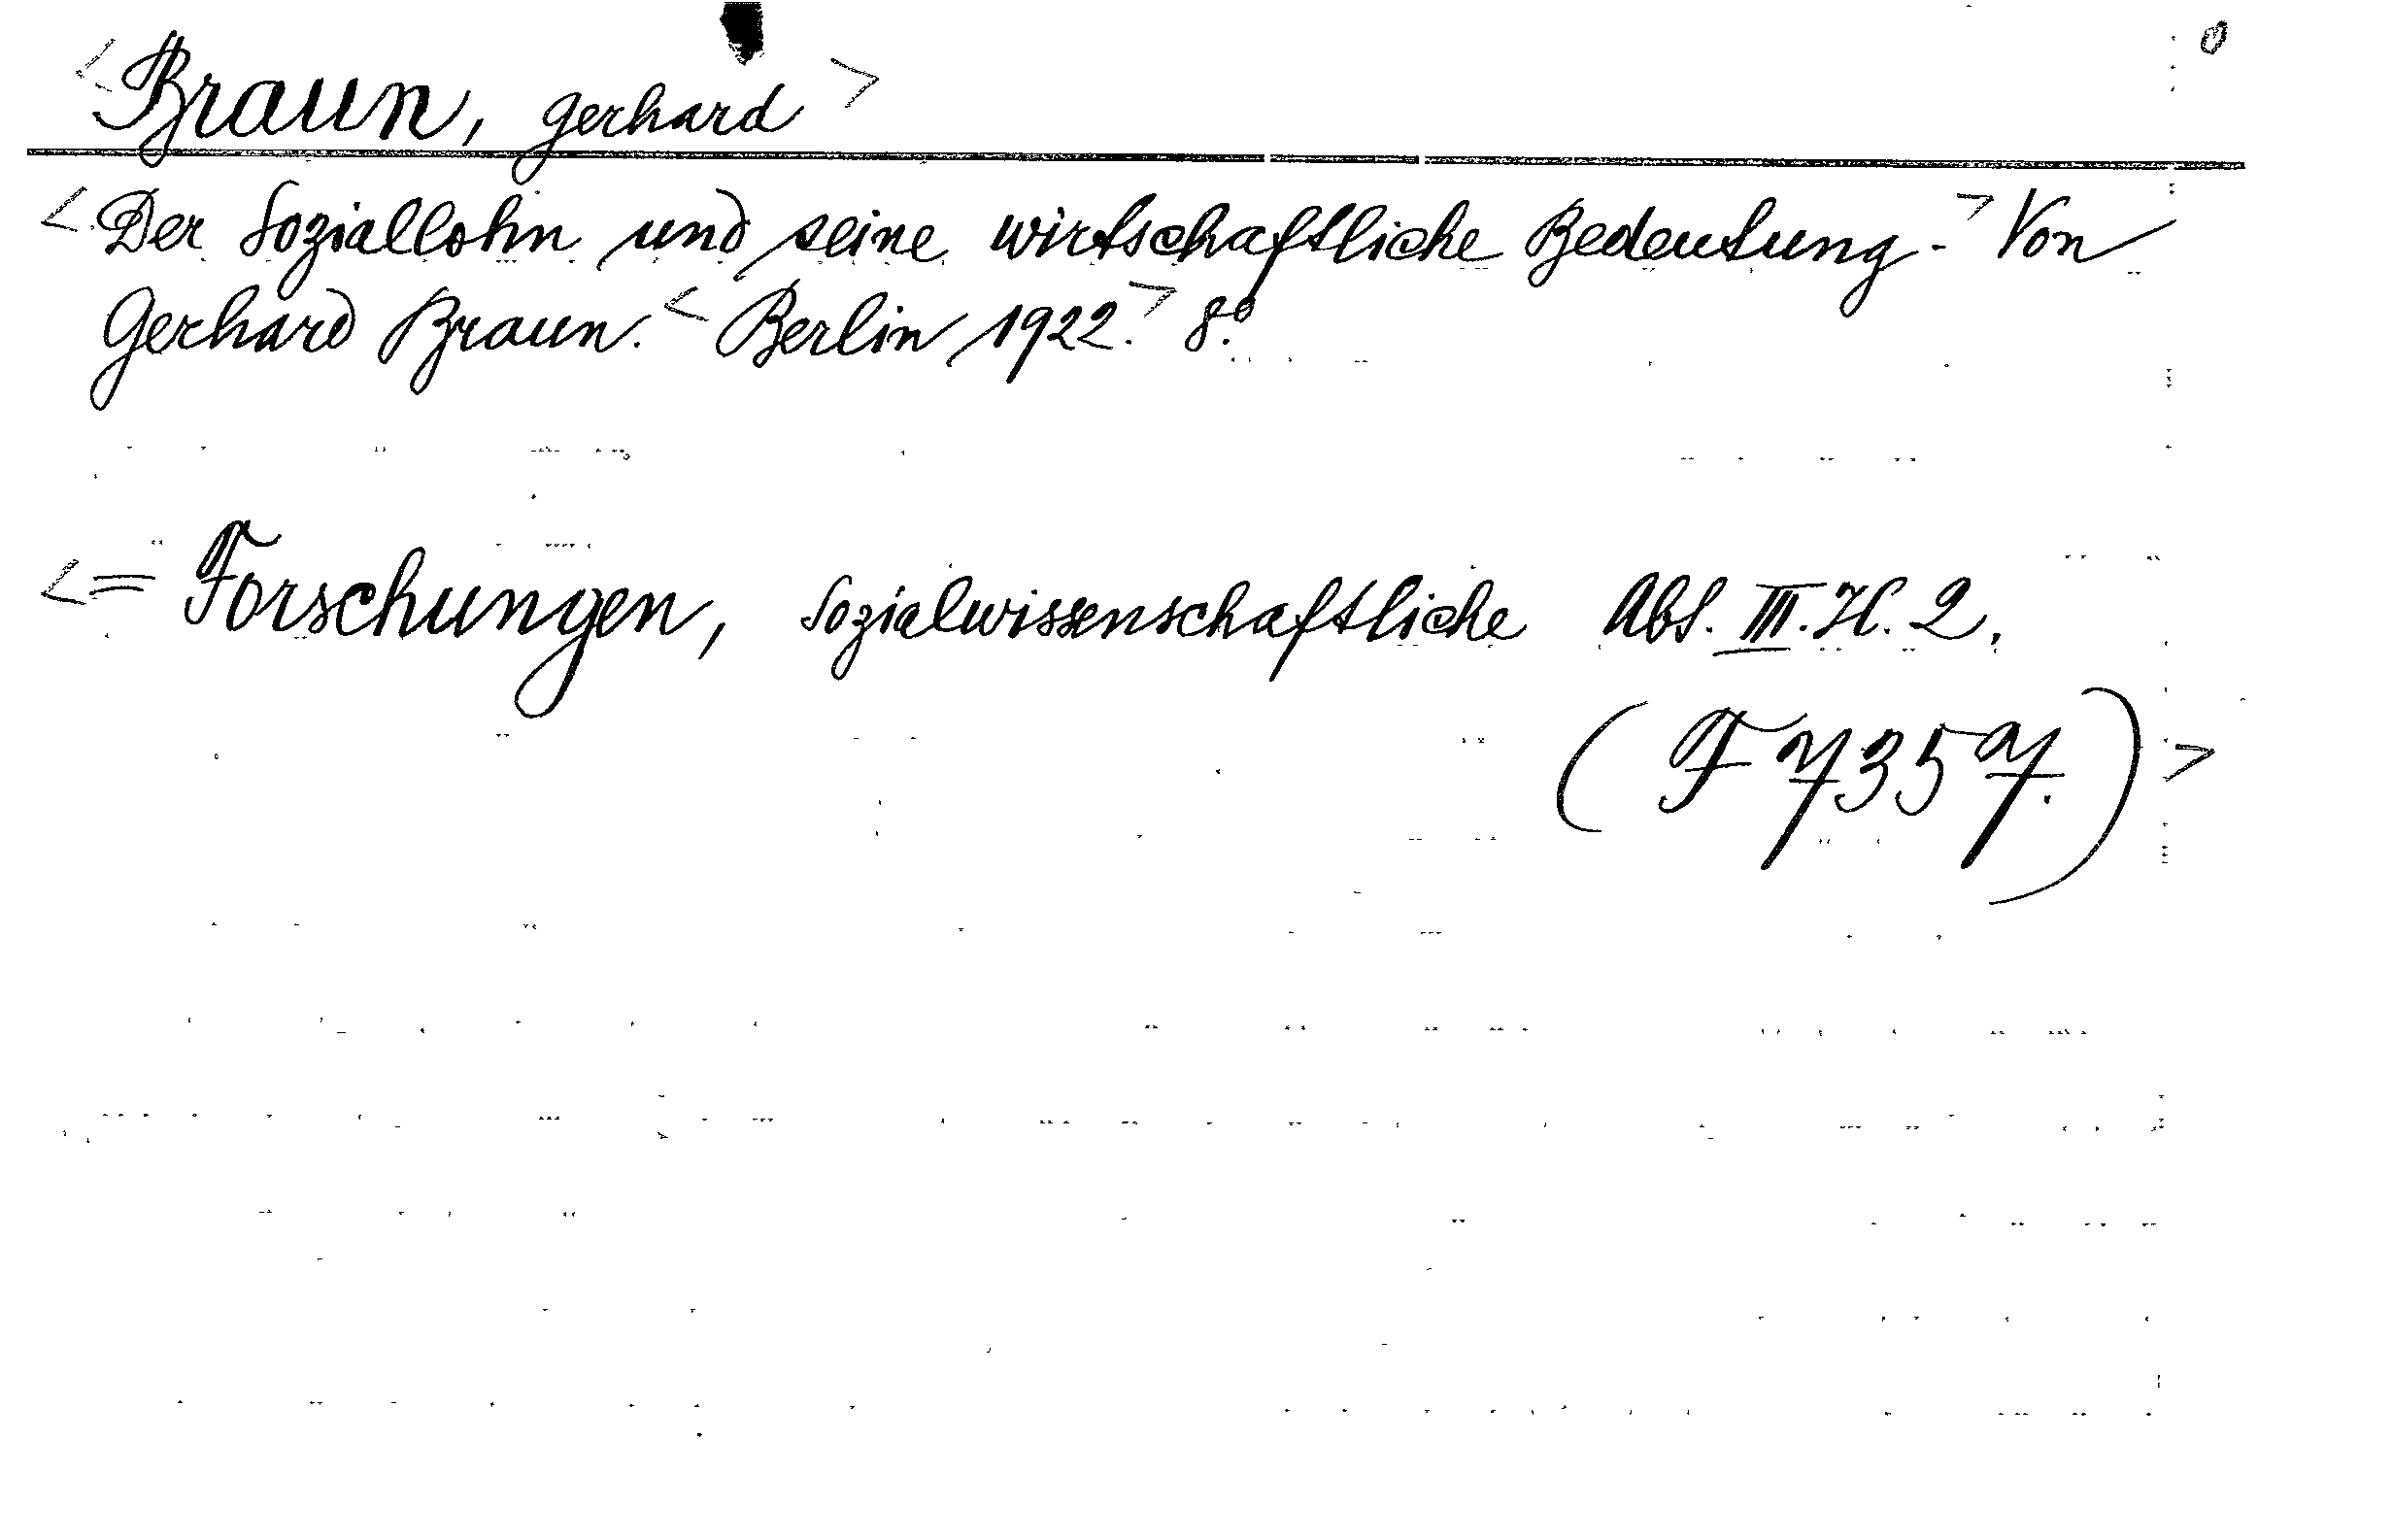 <Braun, Gerhard>
<Der Soziallohn und seine wirtschaftliche Bedeutung.> Von
Gerhard Braun. <Berlin 1922.> 8°.
<= Forschungen, sozialwissenschaftliche Abt. III. H. 2.
(F 7357.)>